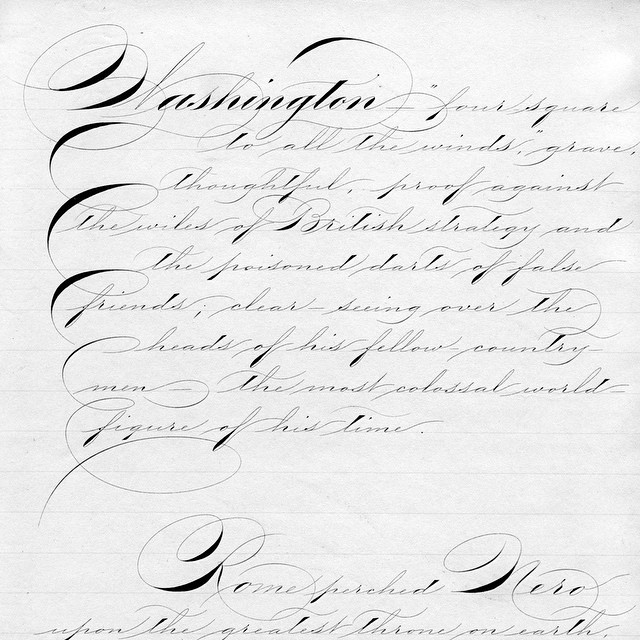 Washington — "four square
to all the winds," grave,
thoughtful, proof against
the wiles of British strategy and
the poisoned darts of false
friends; clear-seeing over the
heads of his fellow-country-
men — the most colossal world-
figure of his time.
Rome perched Nero
upon the greatest throne on earth,